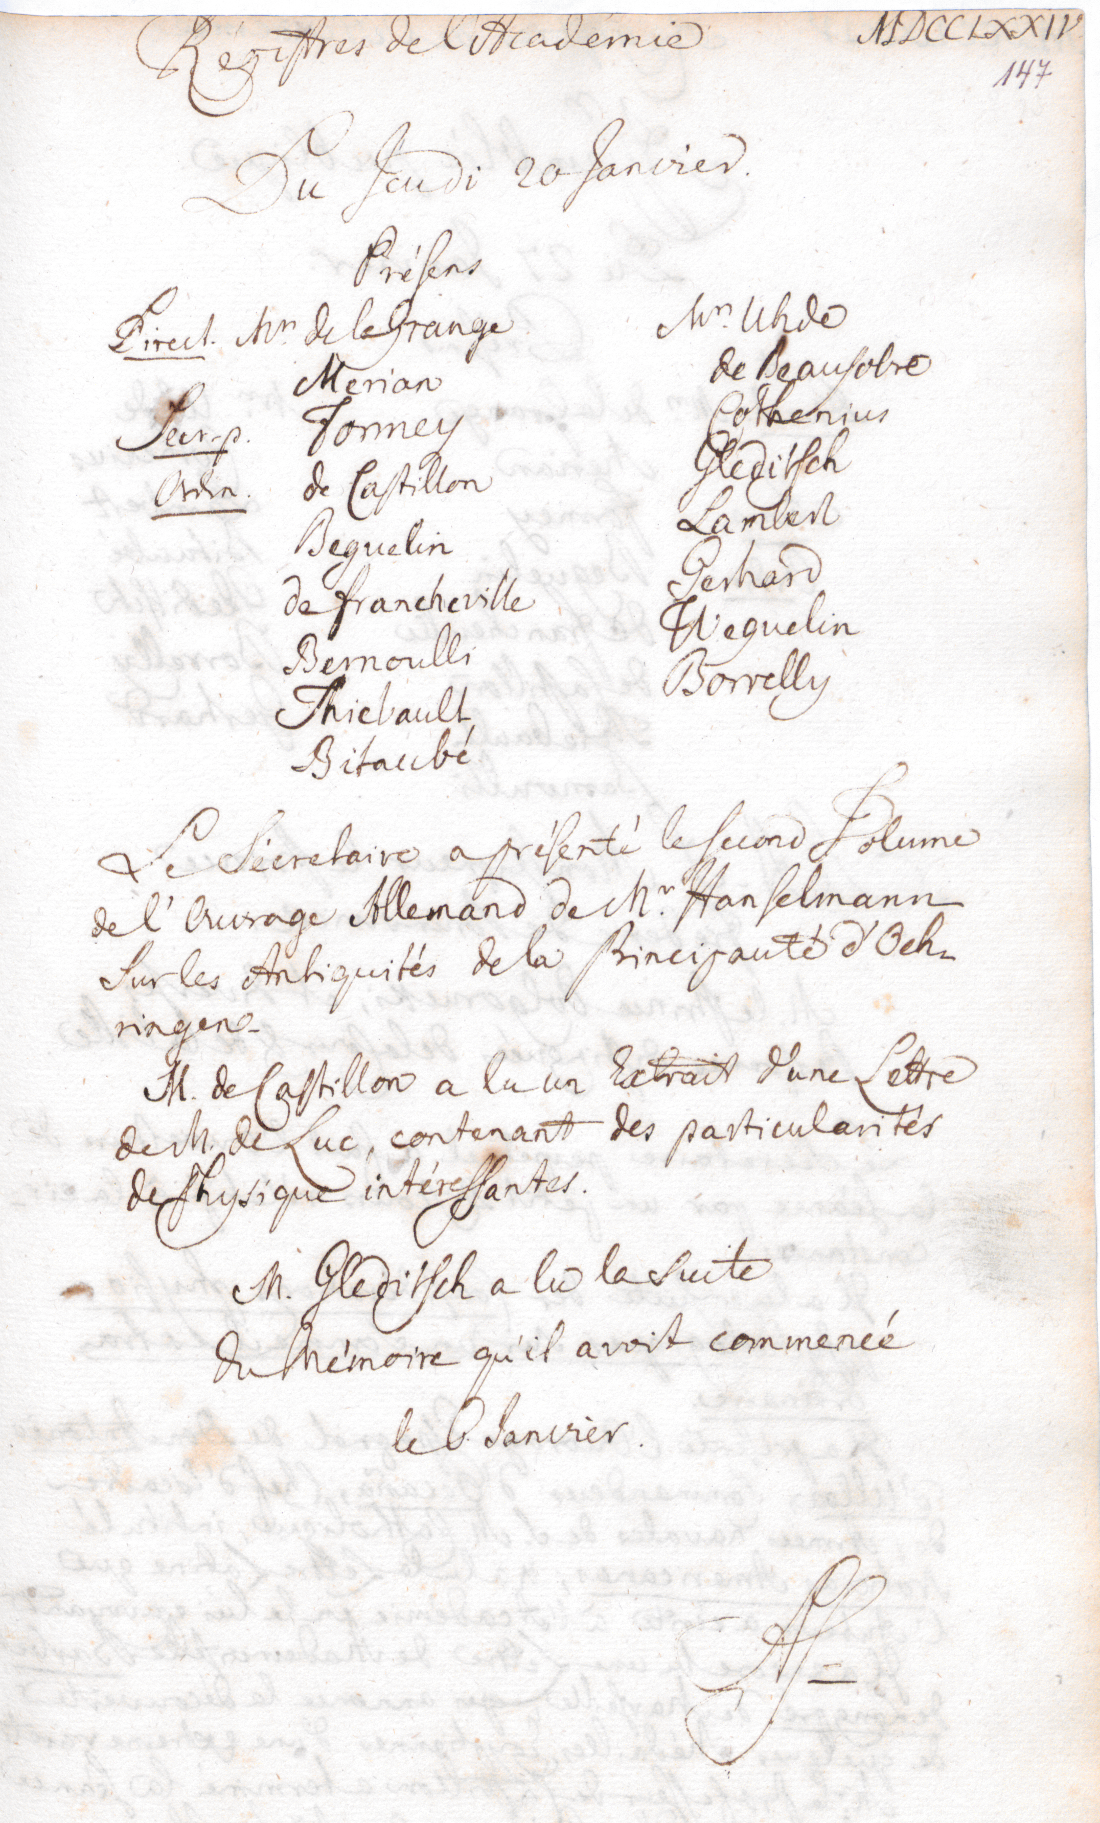 Régistres de l'Académie
MDCCLXXIV
147
Du Jeudi 20 Janvier.
Présens
Direct. Mrs. de la Grange
Merian
Secr. p. Formey
Ordin. de Castillon
Beguelin
de Francheville
Bernoulli
Thiebault
Bitaubé
Mrs. Uhde
de Beausobre
Cothenius
Gleditsch
Lambert
Gerhard
Weguelin
Borrelly
Le Sécretaire a présenté le second Volume
de l'Ouvrage Allemand de Mr. Hanselmann
sur les Antiquités de la Principauté d'Oeh-
ringen.
M. de Castillon a lu un Extrait d'une Lettre
de M. de Luc, contenant des particularités
de Physique intéressantes.
M. Gleditsch a lu la suite
du Mémoire qu'il avoit commencé
le 6. Janvier.